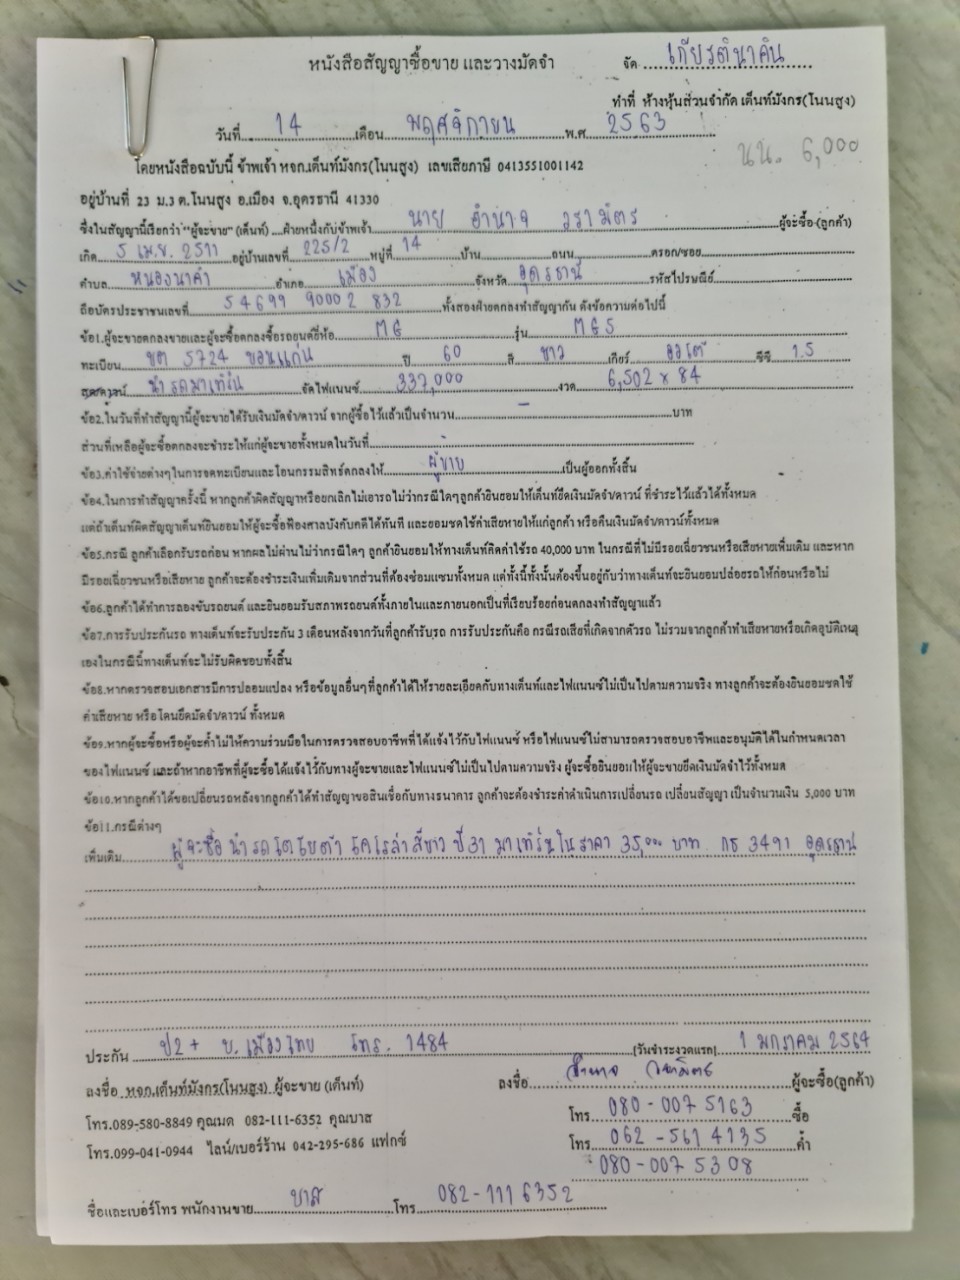 หนังสือสัญญาซื้อขาย และวางมัดจำ
จัด เกียรตินาคิน
ทำที่ ห้างหุ้นส่วนจำกัด เต็นท์มังกร(โนนสูง)
วันที่ 14 เดือน พฤศจิกายน พ.ศ. 2563
นน. 6,000
โดยหนังสือฉบับนี้ ข้าพเจ้า หจก.เต็นท์มังกร(โนนสูง) เลขเสียภาษี 0413551001142
อยู่บ้านที่ 23 ม.3 ต.โนนสูง อ.เมือง จ.อุดรธานี 41330
ซึ่งในสัญญานี้เรียกว่า "ผู้จะขาย" (เต็นท์) ....ฝ่ายหนึ่งกับข้าพเจ้า นาย อำนาจ วรามิตร ผู้จะซื้อ (ลูกค้า)
เกิด 5 เม.ย. 2511 อยู่บ้านเลขที่ 225/2 หมู่ที่ 14 บ้าน ถนน ตรอก/ซอย
ตำบล หนองนาคำ อำเภอ เมือง จังหวัด อุดรธานี รหัสไปรษณีย์
ถือบัตรประชาชนเลขที่ 54699 90002 832 ทั้งสองฝ่ายตกลงทำสัญญากัน ดังข้อความต่อไปนี้
ข้อ1.ผู้จะขายตกลงขายและผู้จะซื้อตกลงซื้อรถยนต์ยี่ห้อ MG รุ่น MG5
ทะเบียน ขต 5724 ขอนแก่น ปี 60 สี ขาว เกียร์ ออโต้ ซีซี 1.5
สุดดาวน์ นำรถมาเทิร์น จัดไฟแนนซ์ 337,000 งวด 6,502 x 84
ข้อ2.ในวันที่ทำสัญญานี้ผู้จะขายได้รับเงินมัดจำ/ดาวน์ จากผู้ซื้อไว้แล้วเป็นจำนวน - บาท
ส่วนที่เหลือผู้จะซื้อตกลงจะชำระให้แก่ผู้จะขายทั้งหมดในวันที่
ข้อ3.ค่าใช้จ่ายต่างๆในการจดทะเบียนและโอนกรรมสิทธ์ตกลงให้ ผู้ขาย เป็นผู้ออกทั้งสิ้น
ข้อ4.ในการทำสัญญาครั้งนี้ หากลูกค้าผิดสัญญาหรือยกเลิกไม่เอารถไม่ว่ากรณีใดๆลูกค้ายินยอมให้เต็นท์ยึดเงินมัดจำ/ดาวน์ ที่ชำระไว้แล้วได้ทั้งหมด
แต่ถ้าเต็นท์ผิดสัญญาเต็นท์ยินยอมให้ผู้จะซื้อฟ้องศาลบังคับคดีได้ทันที และยอมชดใช้ค่าเสียหายให้แก่ลูกค้า หรือคืนเงินมัดจำ/ดาวน์ทั้งหมด
ข้อ5.กรณี ลูกค้าเลือกรับรถก่อน หากผลไม่ผ่านไม่ว่ากรณีใดๆ ลูกค้ายินยอมให้ทางเต็นท์คิดค่าใช้รถ 40,000 บาท ในกรณีที่ไม่มีรอยเฉี่ยวชนหรือเสียหายเพิ่มเติม และหาก
มีรอยเฉี่ยวชนหรือเสียหาย ลูกค้าจะต้องชำระเงินเพิ่มเติมจากส่วนที่ต้องซ่อมแซมทั้งหมด แต่ทั้งนี้ทั้งนั้นต้องขึ้นอยู่กับว่าทางเต็นท์จะยินยอมปล่อยรถให้ก่อนหรือไม่
ข้อ6.ลูกค้าได้ทำการลองขับรถยนต์ และยินยอมรับสภาพรถยนต์ทั้งภายในและภายนอกเป็นที่เรียบร้อยก่อนตกลงทำสัญญาแล้ว
ข้อ7.การรับประกันรถ ทางเต็นท์จะรับประกัน 3 เดือนหลังจากวันที่ลูกค้ารับรถ การรับประกันคือ กรณีรถเสียที่เกิดจากตัวรถ ไม่รวมจากลูกค้าทำเสียหายหรือเกิดอุบัติเหตุ
เองในกรณีนี้ทางเต็นท์จะไม่รับผิดชอบทั้งสิ้น
ข้อ8.หากตรวจสอบเอกสารมีการปลอมแปลง หรือข้อมูลอื่นๆที่ลูกค้าได้ให้รายละเอียดกับทางเต็นท์และไฟแนนซ์ไม่เป็นไปตามความจริง ทางลูกค้าจะต้องยินยอมชดใช้
ค่าเสียหาย หรือโดนยึดมัดจำ/ดาวน์ ทั้งหมด
ข้อ9.หากผู้จะซื้อหรือผู้จะค้ำไม่ให้ความร่วมมือในการตรวจสอบอาชีพที่ได้แจ้งไว้กับไฟแนนซ์ หรือไฟแนนซ์ไม่สามารถตรวจสอบอาชีพและอนุมัติได้ในกำหนดเวลา
ของไฟแนนซ์ และถ้าหากอาชีพที่ผู้จะซื้อได้แจ้งไว้กับทางผู้จะขายและไฟแนนซ์ไม่เป็นไปตามความจริง ผู้จะซื้อยินยอมให้ผู้จะขายยึดเงินมัดจำไว้ทั้งหมด
ข้อ10.หากลูกค้าได้ขอเปลี่ยนรถหลังจากลูกค้าได้ทำสัญญาขอสินเชื่อกับทางธนาคาร ลูกค้าจะต้องชำระค่าดำเนินการเปลี่ยนรถ เปลี่ยนสัญญา เป็นจำนวนเงิน 5,000 บาท
ข้อ11.กรณีต่างๆ
เพิ่มเติม ผู้จะซื้อ นำรถโตโยต้า โคโรล่า สีขาว ปี 31 มาเทิร์นในราคา 35,000 บาท กธ 3491 อุดรธานี
ประกัน ป2+ บ.เมืองไทย โทร. 1484 (วันชำระงวดแรก) 1 มกราคม 2564
ลงชื่อ หจก.เต็นท์มังกร(โนนสูง) ผู้จะขาย (เต็นท์) ลงชื่อ อำนาจ วรามิตร ผู้จะซื้อ(ลูกค้า)
โทร.089-580-8849 คุณมด 082-111-6352 คุณบาส โทร. 080-007 5163 ซื้อ
โทร.099-041-0944 ไลน์/เบอร์ร้าน 042-295-686 แฟกซ์ โทร. 062-561 4135 ค้ำ
080-007 5308
ชื่อและเบอร์โทร พนักงานขาย บาส โทร 082-111 6352